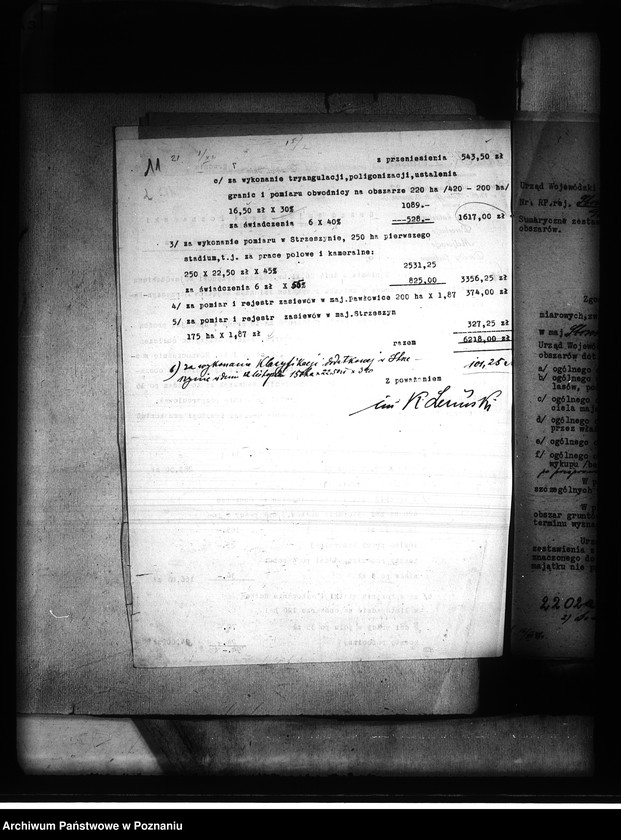 11
21
z przeniesienia 543,50 zł
c/ za wykonanie tryangulacji,poligonizacji,ustalenia
granic i pomiaru obwodnicy na obszarze 220 ha /420 - 200 ha/
16,50 zł X 30% 1089.-
za świadczenia 6 X 40% 528.- 1617,00 zł
3/ za wykonanie pomiaru w Strzeszynie, 250 ha pierwszego
stadium,t.j. za prace polowe i kameralne:
250 X 22,50 zł X 45% 2531,25
za świadczenia 6 zł X 55% 825.00 3356,25 zł
4/ za pomiar i rejestr zasiewów w maj.Pawłowice 200 ha X 1,87 374,00 zł
5/ za pomiar i rejestr zasiewów w maj.Strzeszyn
175 ha X 1,87 zł 327,25 zł
razem 6218,00 zł
6) za wykonanie klasyfikacji dodatkowej w Strze-
szynie w dniu 12 listopada 150 ha x 22.50 x 3% 101,25 zł
Z poważaniem
Urząd Wojewódzki
Nr. RP.rej.
Sumaryczne zesta
obszarów.
Zgo
niarowych,z
w maj
Urząd Wojew
obszarów dot
a/ ogólnego
b/ ogólnego
lasów, po
c/ ogólnego
ciela maj
d/ ogólnego
przez wła
e/ ogólnego
f/ ogólnego
wykupu /be
W
szczególnych
W
obszar gruntó
terminu wyzna
Urz
zestawienia
znaczonego d
majątku nie p
2202a
Archiwum Państwowe w Poznaniu